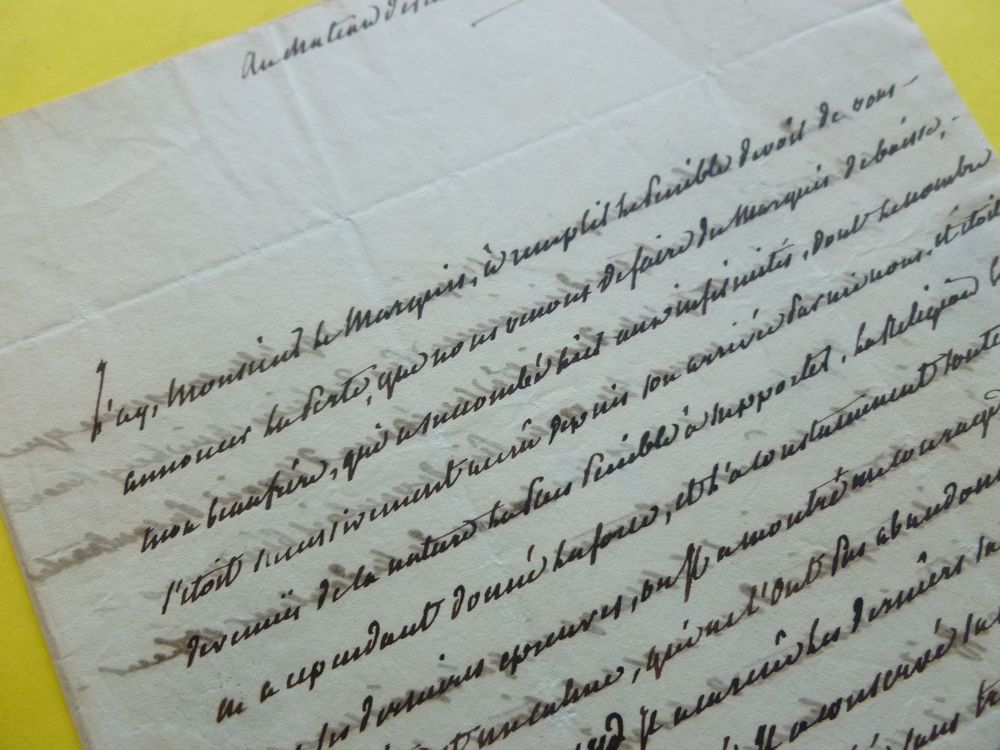 Au chateau de
J'ay, Monsieur le Marquis, à remplir le penible devoir de vous
annoncer la perte, que nous venons de faire du Marquis de baisse,
mon beaufrère, qui a succombé hier aux infirmités, dont le nombre
s'étoit successivement accrû depuis son arrivée parmi nous, et étoit
devenüe de la nature la plus penible à supporter, la Religion
en a cependant donné la force, et l'a constamment soutenu
ses dernieres epreuves, ou Il a montré un courage
et un calme, qui ne l'ont pas abandonné
Il a vû les derniers
Il a conservé sa
sans